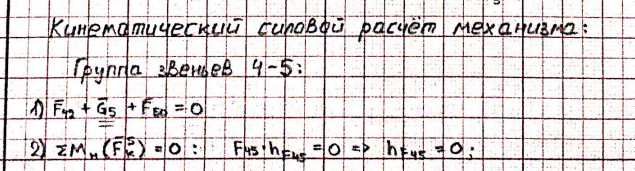 Кинематический силовой расчёт механизма:
Группа звеньев 4-5:
1) F̄₄₂ + Ḡ₅ + F̄₅₀ = 0
2) ΣMₙ(F̄ₖ⁵) = 0 : F₄₅·h_F₄₅ = 0 => h_F₄₅ = 0;